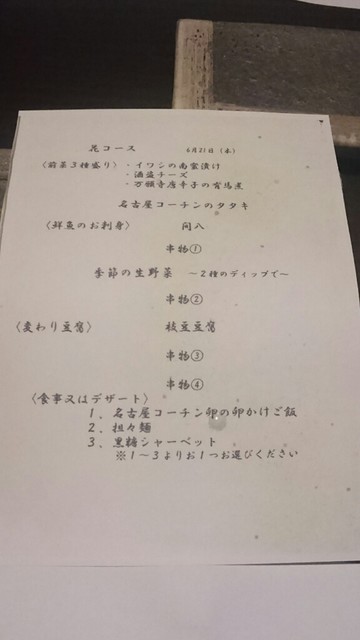 花コース 6月21日(水)
〈前菜3種盛り〉・イワシの南蛮漬け
・酒盗チーズ
・万願寺唐辛子の有馬煮
名古屋コーチンのタタキ
〈鮮魚のお刺身〉 間八
串物①
季節の生野菜 ～2種のディップで～
串物②
〈変わり豆腐〉 枝豆豆腐
串物③
串物④
〈食事又はデザート〉
1、名古屋コーチン卵の卵かけご飯
2、担々麺
3、黒糖シャーベット
※1～3よりお1つお選びください